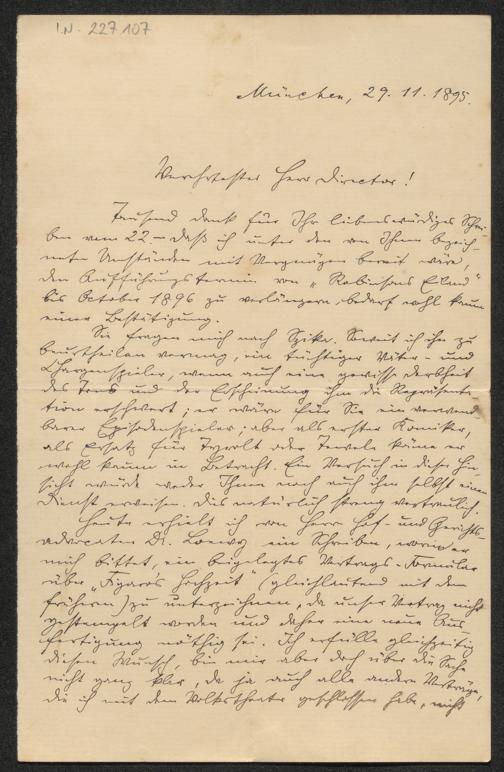 I.N. 227 107
München, 29. 11. 1895.
Verehrtester Herr Director!
Tausend Dank für Ihr liebenswürdiges Schrei-
ben vom 22. – daß ich unter den von Ihnen bezeich-
neten Umständen mit Vergnügen bereit wäre,
den Aufführungstermin von „Robinsons Eiland“
bis October 1896 zu verlängern, bedarf wohl kaum
einer Bestätigung.
Sie fragen mich nach Spika. Soweit ich ihn zu
beurtheilen vermag, ein tüchtiger Väter- und
Chargenspieler, wenn auch eine gewisse Derbheit
des Tons und der Erscheinung ihm die Repräsenta-
tion erschwert; er wäre für Sie ein verwend-
barer Episodenspieler; aber als erster Komiker,
als Ersatz für Tyrolt oder Tewele käme er
wohl kaum in Betracht. Ein Versuch in dieser Hin-
sicht würde weder Ihnen noch auch ihm selbst einen
Dienst erweisen. Dies natürlich streng vertraulich.
Heute erhielt ich von Herrn Hof- und Gerichts-
advocaten Dr. Loewy ein Schreiben, worin er
mich bittet, ein beigelegtes Vertrags-Formular
über „Figaros Hochzeit“ (gleichlautend mit dem
frühern) zu unterzeichnen, da unser Vertrag nicht
gestempelt worden und daher eine neue Aus-
fertigung nöthig sei. Ich erfülle gleichzeitig
diesen Wunsch, bin mir aber doch über die Sache
nicht ganz klar, da ja auch alle andern Verträge,
die ich mit dem Volkstheater geschlossen habe, nicht